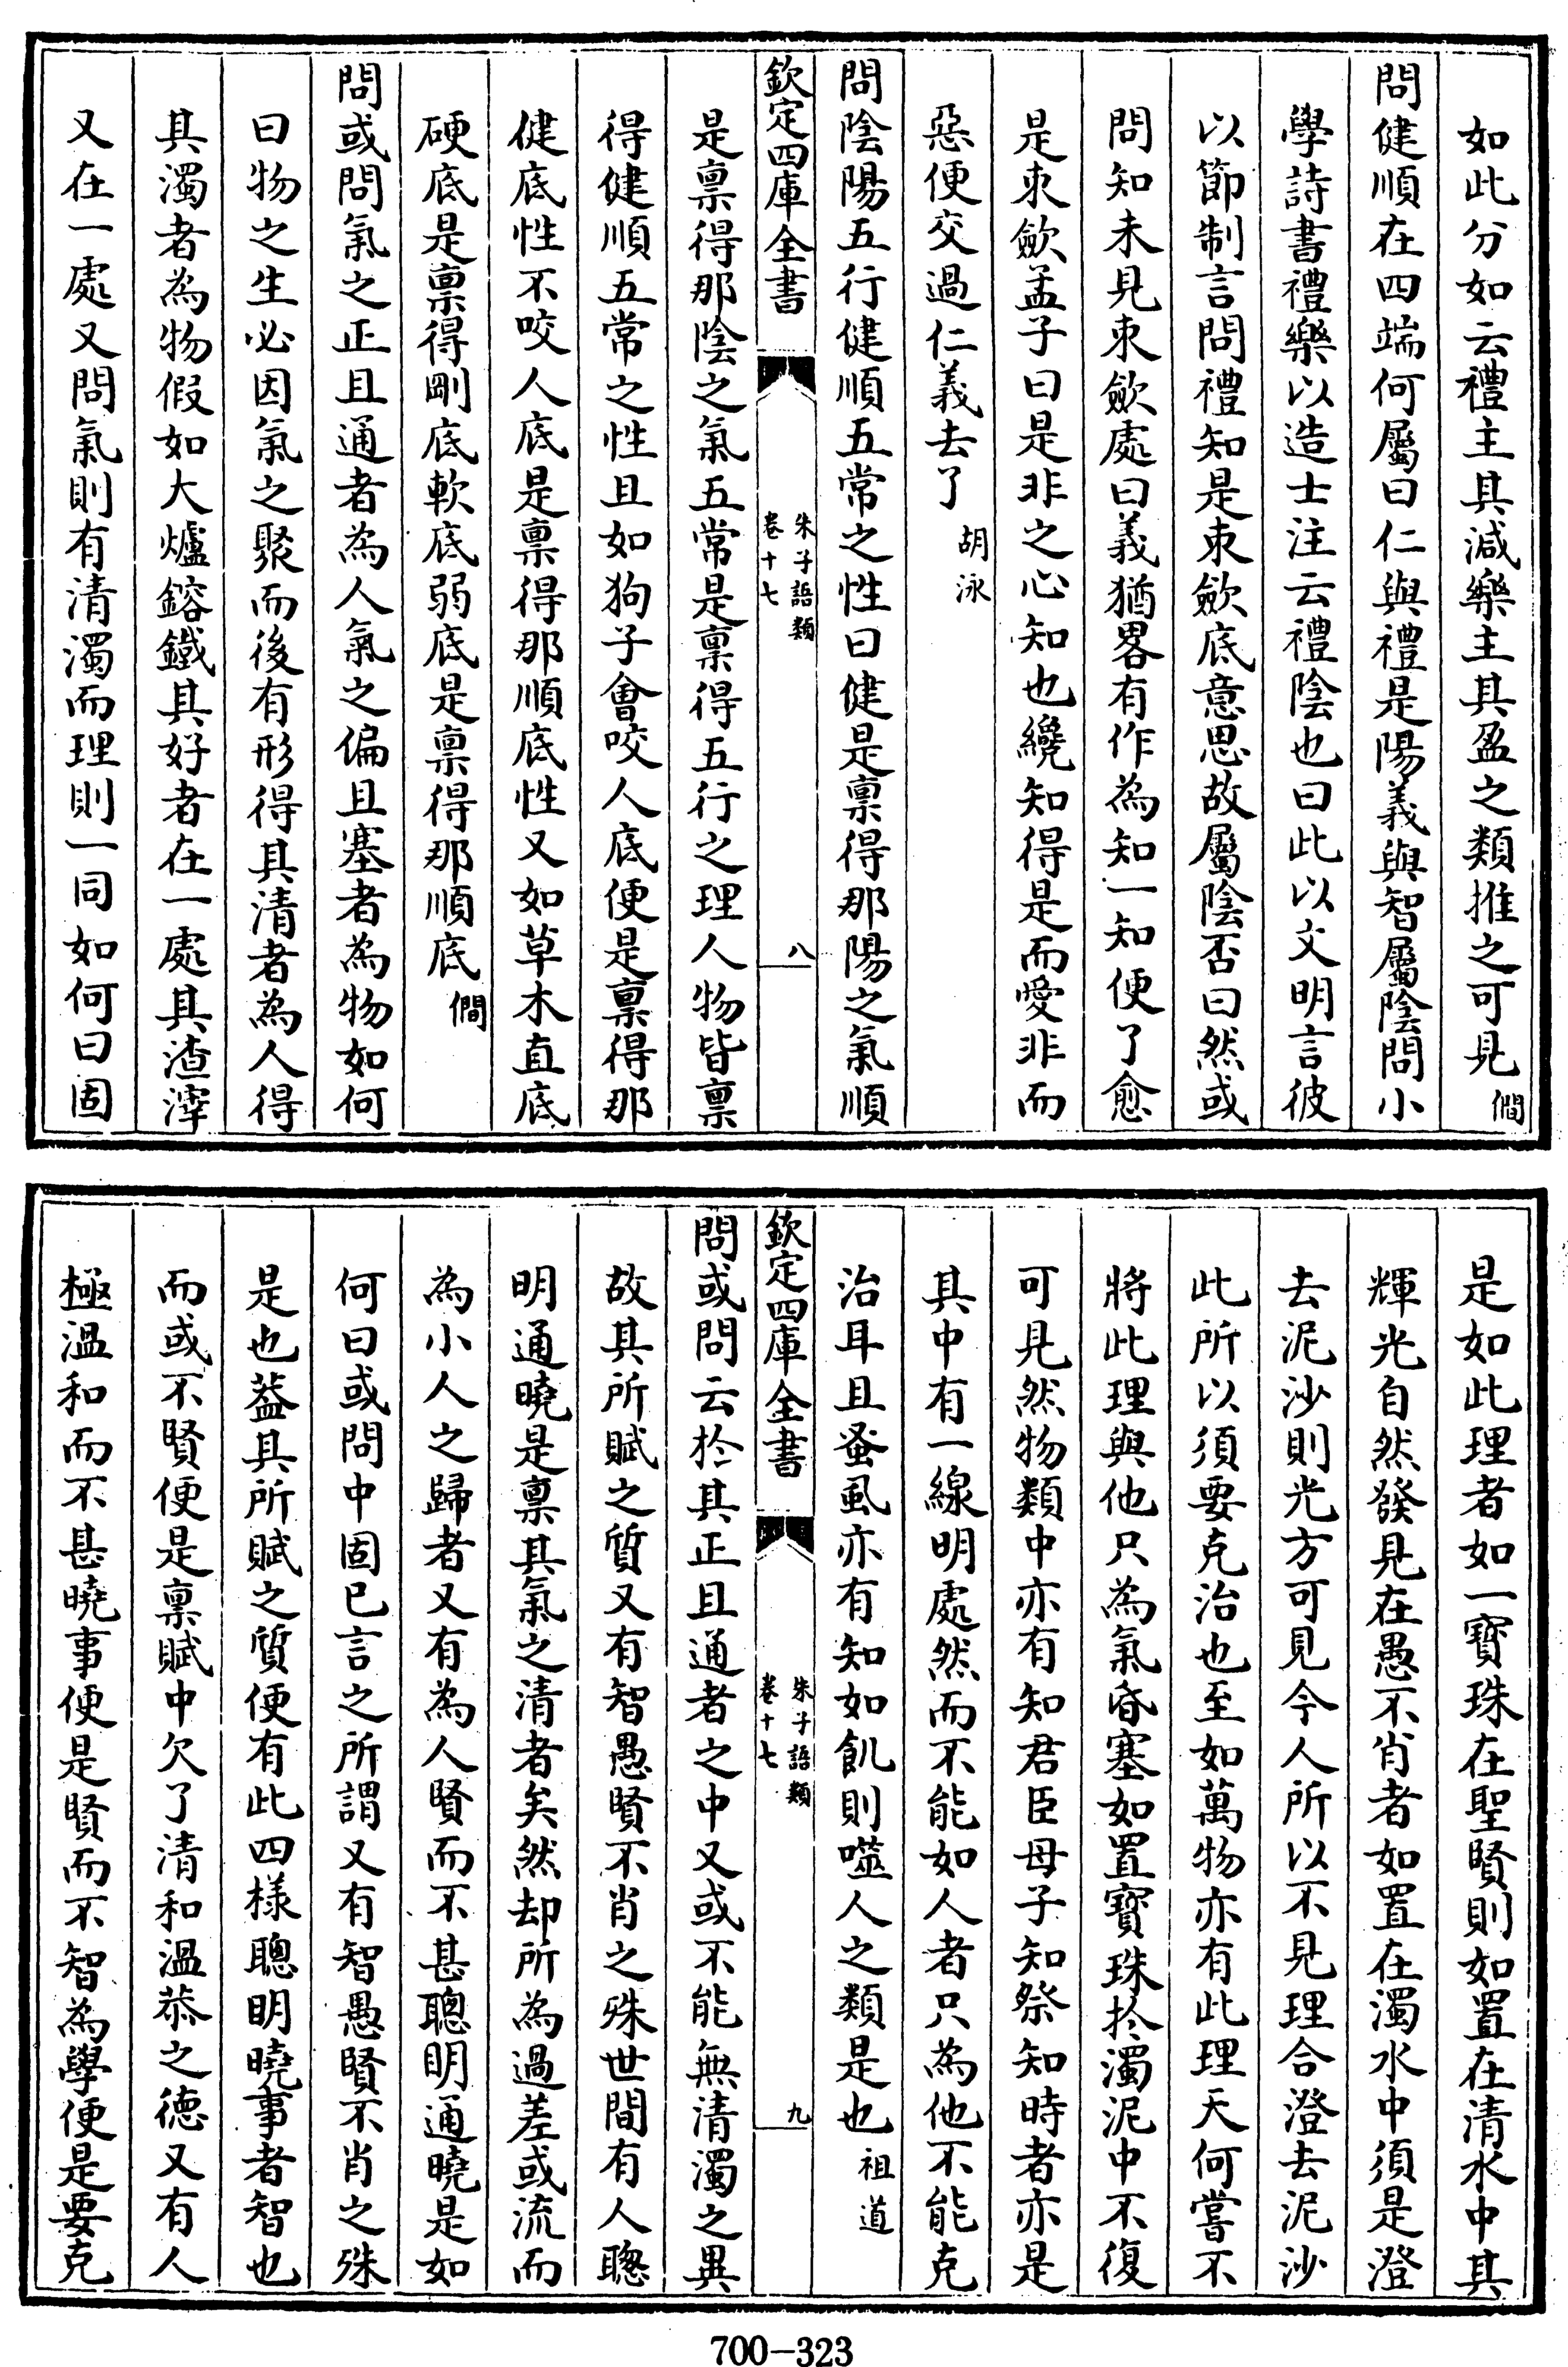 如此分如云禮主其減樂主其盈之類推之可見僩
問健順在四端何屬曰仁與禮是陽義與智屬陰問小
學詩書禮樂以造士注云禮陰也曰此以文明言彼
以節制言問禮知是朿歛底意思故屬陰否曰然或
問知未見朿歛處曰義猶畧有作為知一知便了愈
是朿歛孟子曰是非之心知也纔知得是而愛非而
惡便交過仁義去了胡泳
問陰陽五行健順五常之性曰健是禀得那陽之氣順
欽定四庫全書
朱子語類
卷十七
八
是禀得那陰之氣五常是禀得五行之理人物皆禀
得健順五常之性且如狗子會咬人底便是禀得那
健底性不咬人底是禀得那順底性又如草木直底
硬底是禀得剛底軟底弱底是禀得那順底僩
問或問氣之正且通者為人氣之偏且塞者為物如何
曰物之生必因氣之聚而後有形得其清者為人得
其濁者為物假如大爐鎔鐵其好者在一處其渣滓
又在一處又問氣則有清濁而理則一同如何曰固
是如此理者如一寳珠在聖賢則如置在清水中其
輝光自然發見在愚不肖者如置在濁水中須是澄
去泥沙則光方可見今人所以不見理合澄去泥沙
此所以須要克治也至如萬物亦有此理天何嘗不
將此理與他只為氣昏塞如置寳珠扵濁泥中不復
可見然物類中亦有知君臣母子知祭知時者亦是
其中有一線明處然而不能如人者只為他不能克
治耳且蚤虱亦有知如飢則噬人之類是也祖道
欽定四庫全書
朱子語類
卷十七
九
問或問云扵其正且通者之中又或不能無清濁之異
故其所賦之質又有智愚賢不肖之殊世間有人聰
明通曉是禀其氣之清者矣然却所為過差或流而
為小人之歸者又有為人賢而不甚聰明通曉是如
何曰或問中固已言之所謂又有智愚賢不肖之殊
是也葢其所賦之質便有此四様聰明曉事者智也
而或不賢便是禀賦中欠了清和温恭之德又有人
極温和而不甚曉事便是賢而不智為學便是要克
700-323